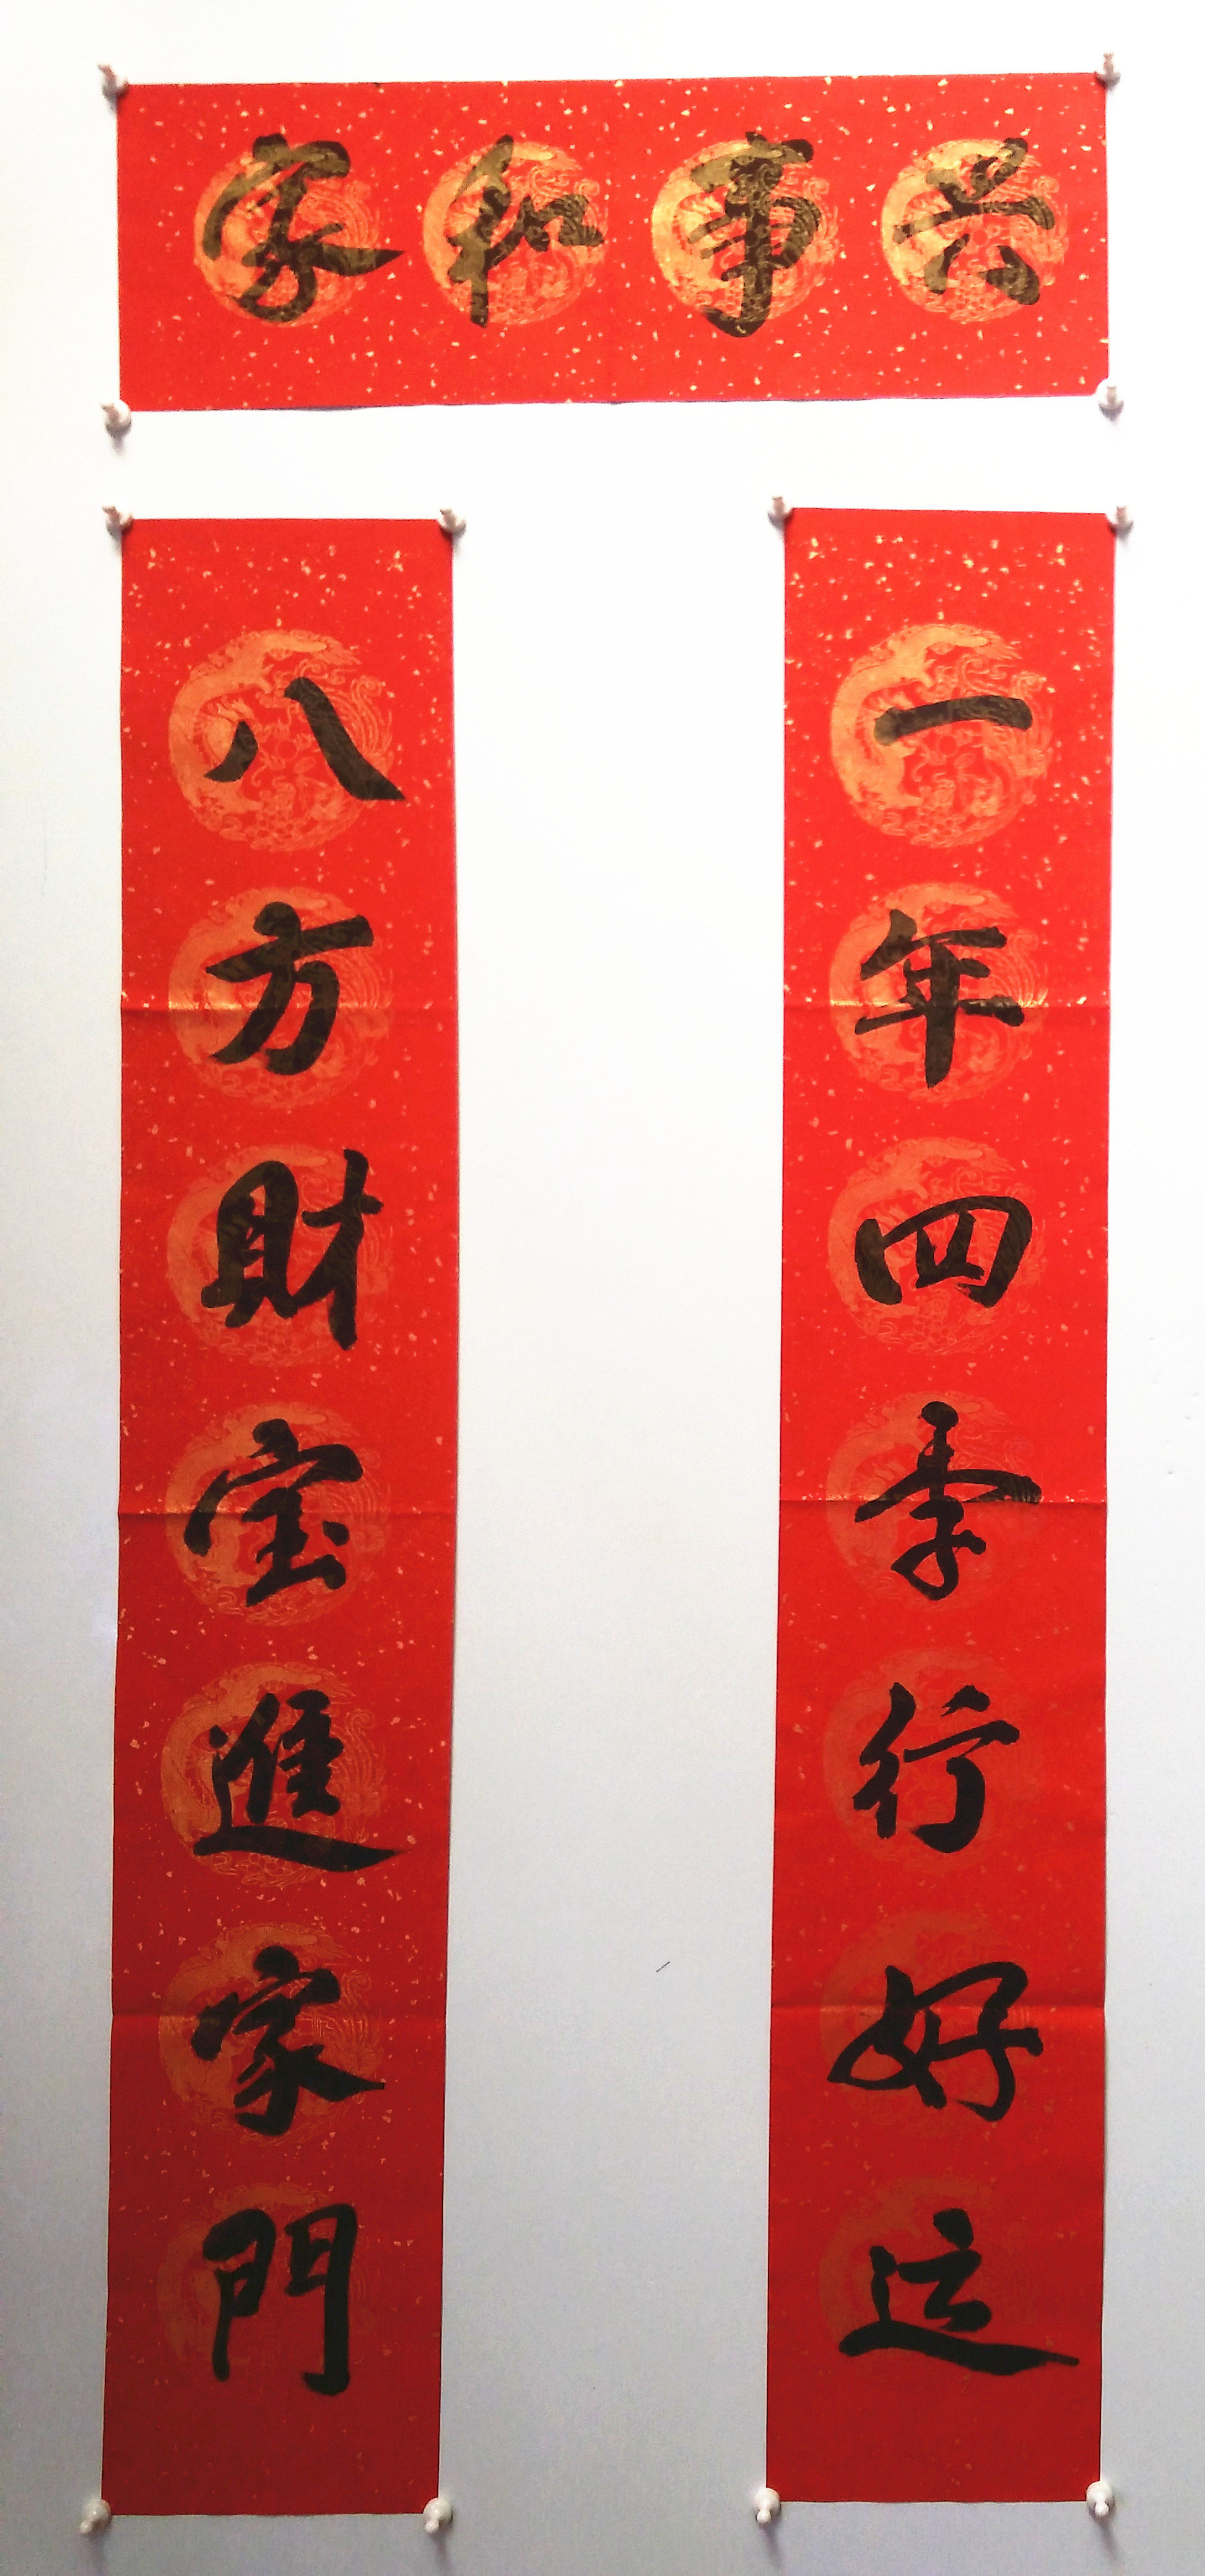 家和事兴
一年四季行好运
八方財宝進家門